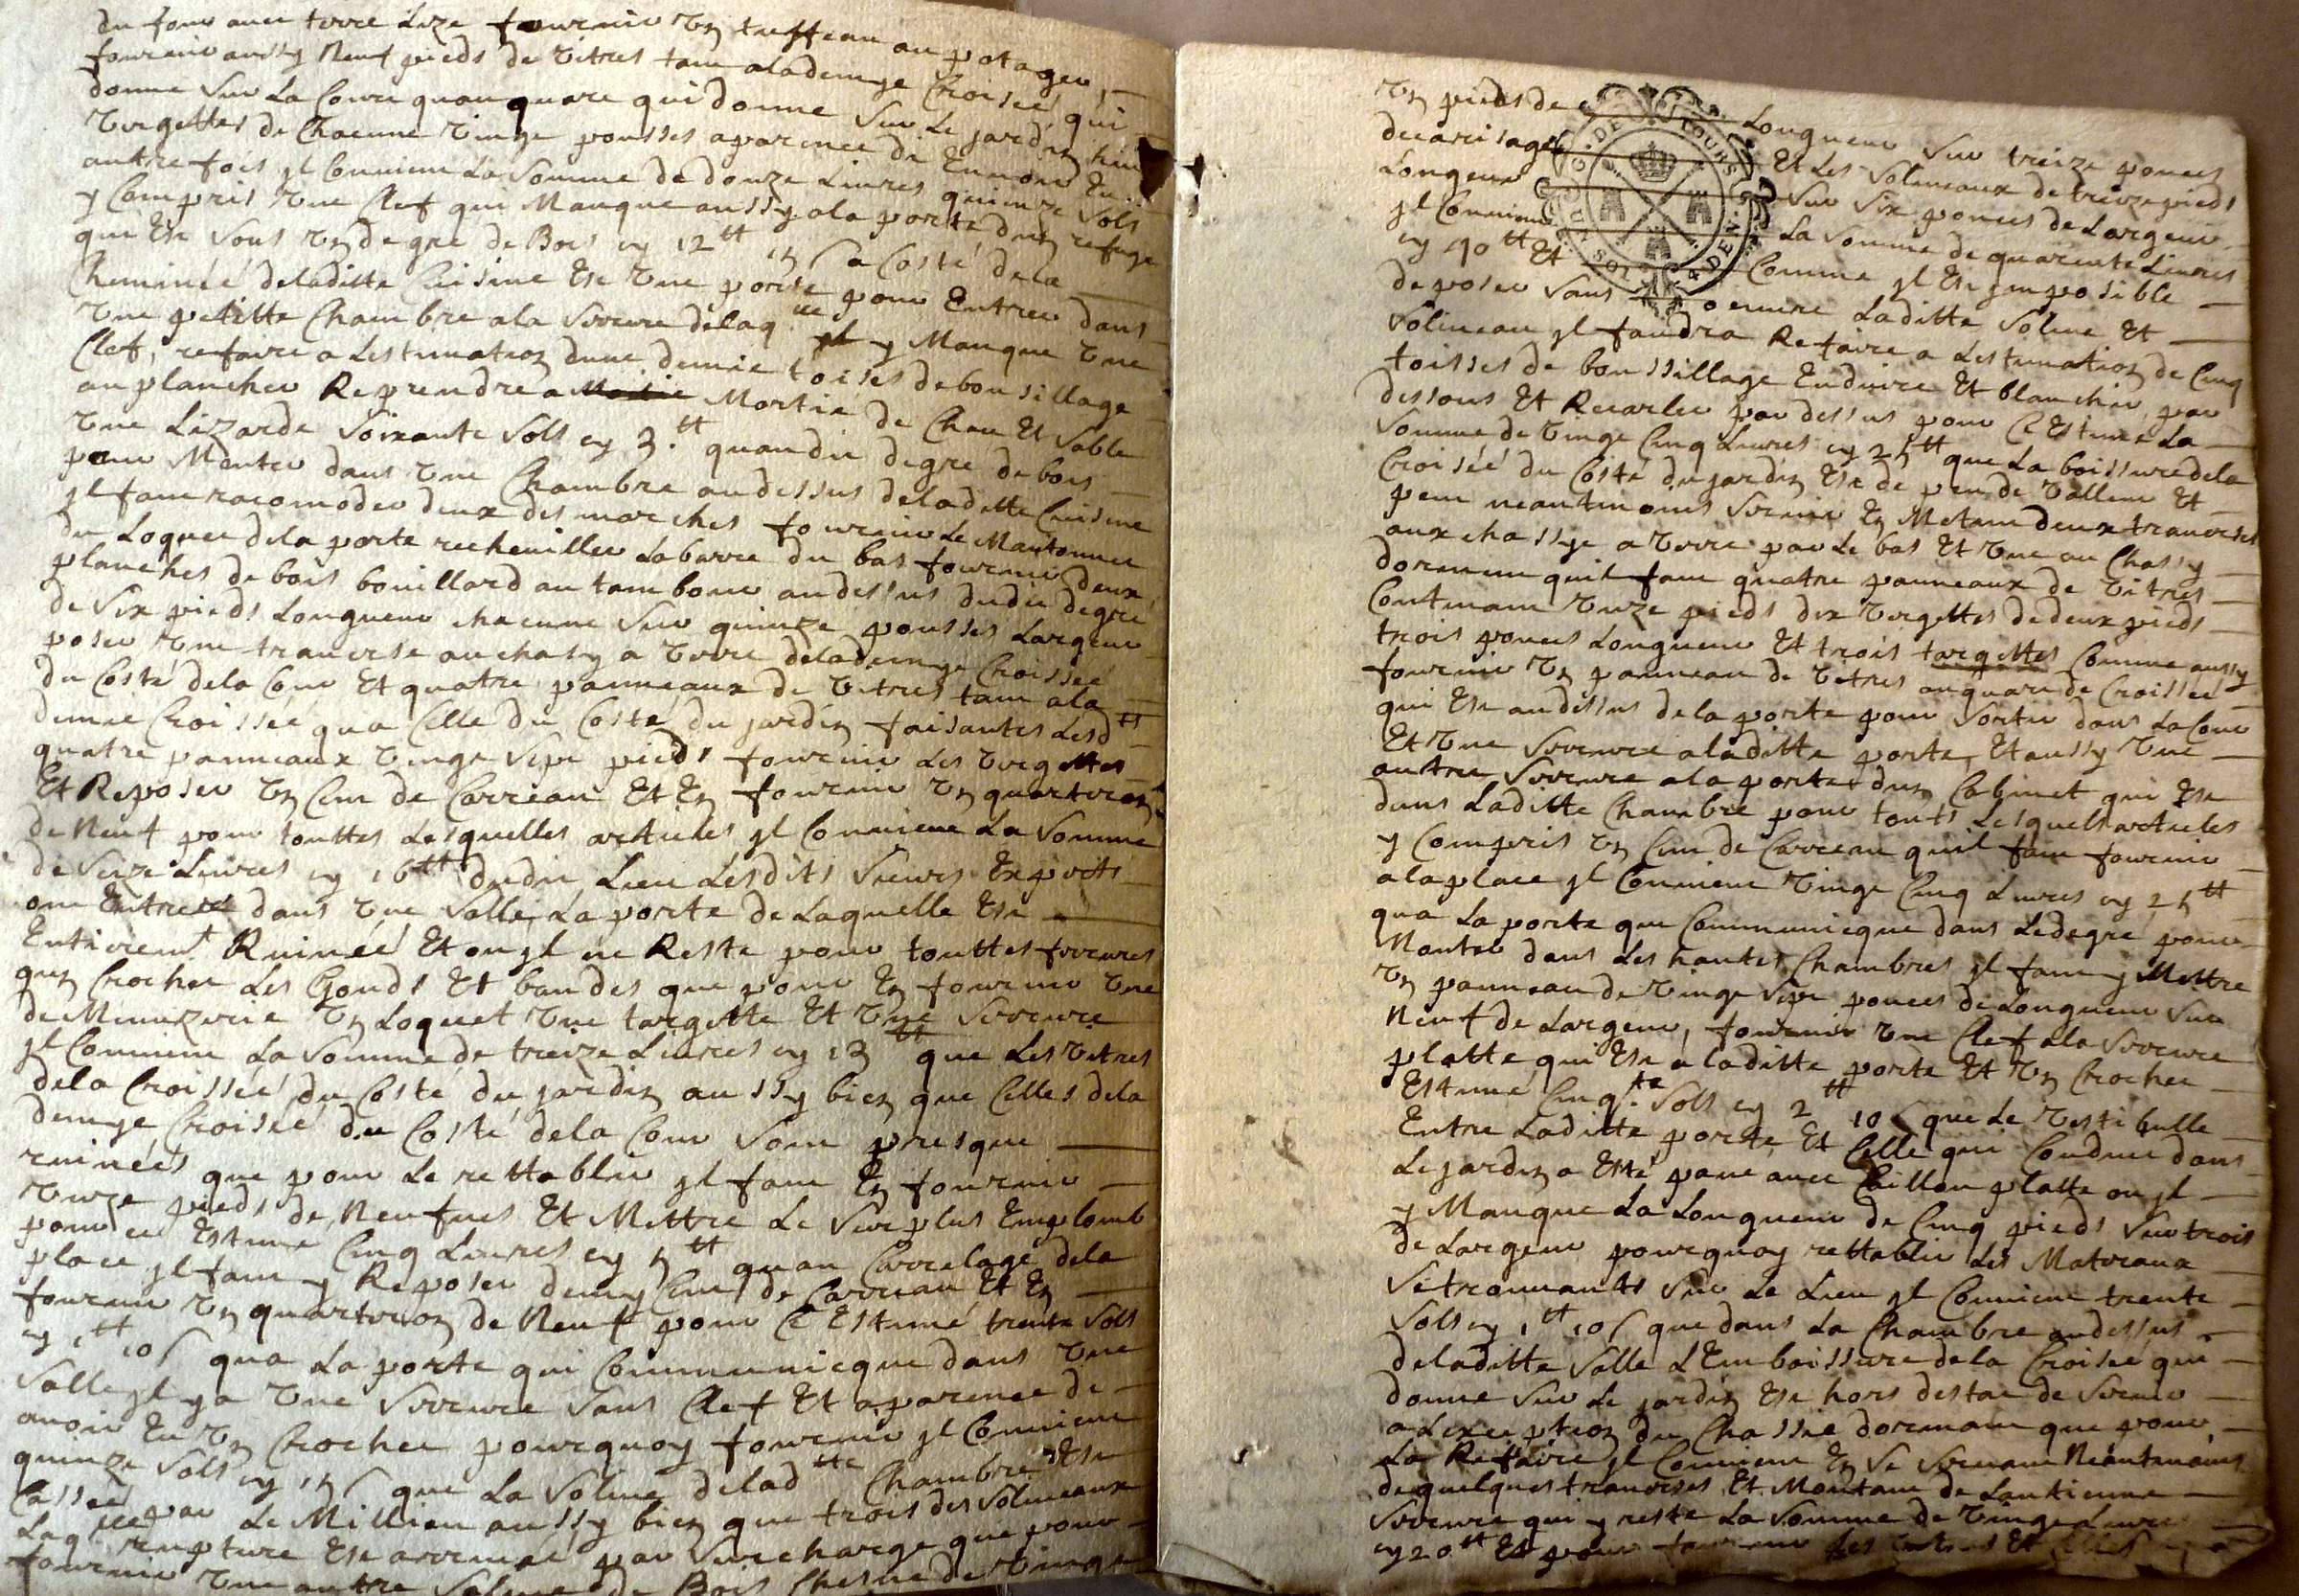 du four avec terre Lize fournir un tuffeau au potager,
fournir aussy Neuf pieds de vitres tant aladémye Croisée qui
donne sur La Courre quau quare qui donne sur Le jardin huit
vergettes de Chacune vingt pousses aparence di En avoir Eu
autre fois jl Convient La somme de douze Livres quinze sols
y Compris une Clef qui Manque aussy ala porte dun refuge
qui Est sous un degré de Bois cy 12tt 15 s a Costé dela
Cheminéé deladitte Cuisine Est une porte pour Entrer dans
une petitte Chambre ala serrure delaqlle jl y Manque une
Clef, refaire a Lestimation dune demie toises de bousillage
au plancher Reprendre a Mortié de Chau Et sable
une Lizarde soixante sols cy 3tt quandit degré de bois
pour Monter dans une Chambre audessus deladitte Cuisine
jl faut racomoder deux des marches fournir Le Mantonnet
du Loquet dela porte recheviller La barre du bas fournir deux
planches de bois bouillard au tambour audessus dudit degré
de six pieds Longueur chacune sur quinze pousses Largeur
poser une traverse au chassy a verre deladémye Croissée
du Costé dela Cour Et quatre panneaux de vitres tant ala
demie Croissée qua Celle du Costé du jardin faisantes Lesdts
quatre panneaux vingt sept pieds fournir Les vergettes
Et Reposer un Cent de Carreau Et En fournir un quarteron
de Neuf pour touttes Lesquelles articles jl Convient La somme
de seize Livres cy 16tt dudit Lieu Lesdits sieurs Experts
ont Entrees dans une salle La porte de Laquelle Est
Entierement Ruinéé Et ou jl ne Reste pour touttes ferrures
qun Crochet Les Gonds Et bandes que pour En fournir une
de Menuzerie un Loquet une targette Et une serrure
jl Convient La somme de treize Livres cy 13tt que Les vitres
dela Croisséé du Costé du jardin aussy bien que Celles dela
demye Croiséé du Costé dela Cour sont presque
ruinéés que pour Le rettablir jl faut En fournir
unze pieds de Neufues Et Mettre Le surplus Emplomb
pour ce Estimé Cinq Livres cy 5tt quau Carrelage dela
place jl faut y Reposer demy Cent de Carreau Et En
fournir un quarteron de Neuf pour Ce Estimé trente sols
cy 1tt 10 s qua La porte qui Communicque dans une
salle jl y a une serrure sans Clef Et aparence de
avoir Eu un Crochet pourquoy fournir jl Convient
quinze sols cy 15 s que La solive deladtte Chambre Est
Cassée par Le Millieu aussy bien que trois des soliveaux
Laqlle rupture Est arrivéé par surcharge que pour
fournir une autre solive de Bois Chesne de vingt
un pieds de Longueur sur treize pouces
decarisage Et Les soliveaux de treize pieds
Longeur sur six pouces de Largeur
jl Convient La somme de quarente Livres
cy 40tt Et Comme jl Est jmposible
de poser sans ouvrire Laditte solive Et
soliveau jl faudra Refaire a Lestimation de Cinq
toisses de boussillage Enduire Et blanchir par
dessous Et Recarler par dessus pour Ce Estimé La
somme de vingt Cinq Livres cy 25tt que La boissure dela
Croiséé du Costé du jardin Est de peu de valleur Et
peut neantmoins servir En Metant deux traverses
aux chassye a verre par Le bas Et une au Chassy
dormeur quil faut quatre panneaux de vitres
Contenant unze pieds dix vergettes de deux pieds
trois pouces Longueur Et trois targettes Comme aussy
fournir un panneau de vitres au quare de Croissée
qui Est audessus dela porte pour sortir dans La Cour
Et une serrure aladitte porte, Et aussy une
autre serrure ala porte dun Cabinet qui Est
dans Laditte Chambre pour touts Lesquels articles
y Compris un Cent de Carreau quil faut fournir
ala place jl Convient vingt Cinq Livres cy 25tt
qua La porte que Communicque dans Ledegré pour
Monter dans Les hautes Chambres jl faut y Mettre
un panneau de vingt sept pouces de Longueur sur
Neuf de Largeur, fournir une Clef ala serrure
platte qui Est a laditte porte Et un Crochet
Estimé Cinqte sols cy 2tt 10 s que Le vestibulle
Entre Laditte porte Et Celle qui Conduit dans
Le jardin a Esté pavé avec Caillou platte ou jl
y Manque La Longueur de Cinq pieds sur trois
de Largeur pourquoy rettablir Les Materiaux
se trouvants sur Le Lieu jl Convient trente
sols cy 1tt 10 s que dans La Chambre audessus
deladitte salle LEmboissure dela Croisée qui
donne sur Le jardin Est hors destat de servir
a Lexception du Chassie dormant que pour
La Refaire jl Convient En se servant Neantmoins
de quelques traverses Et Montant de Lantienne
serrure qui y reste La somme de vingt Livres
cy 20tt Et pour fournir Les vitres Et
G. DE TOURS
4 DEN.